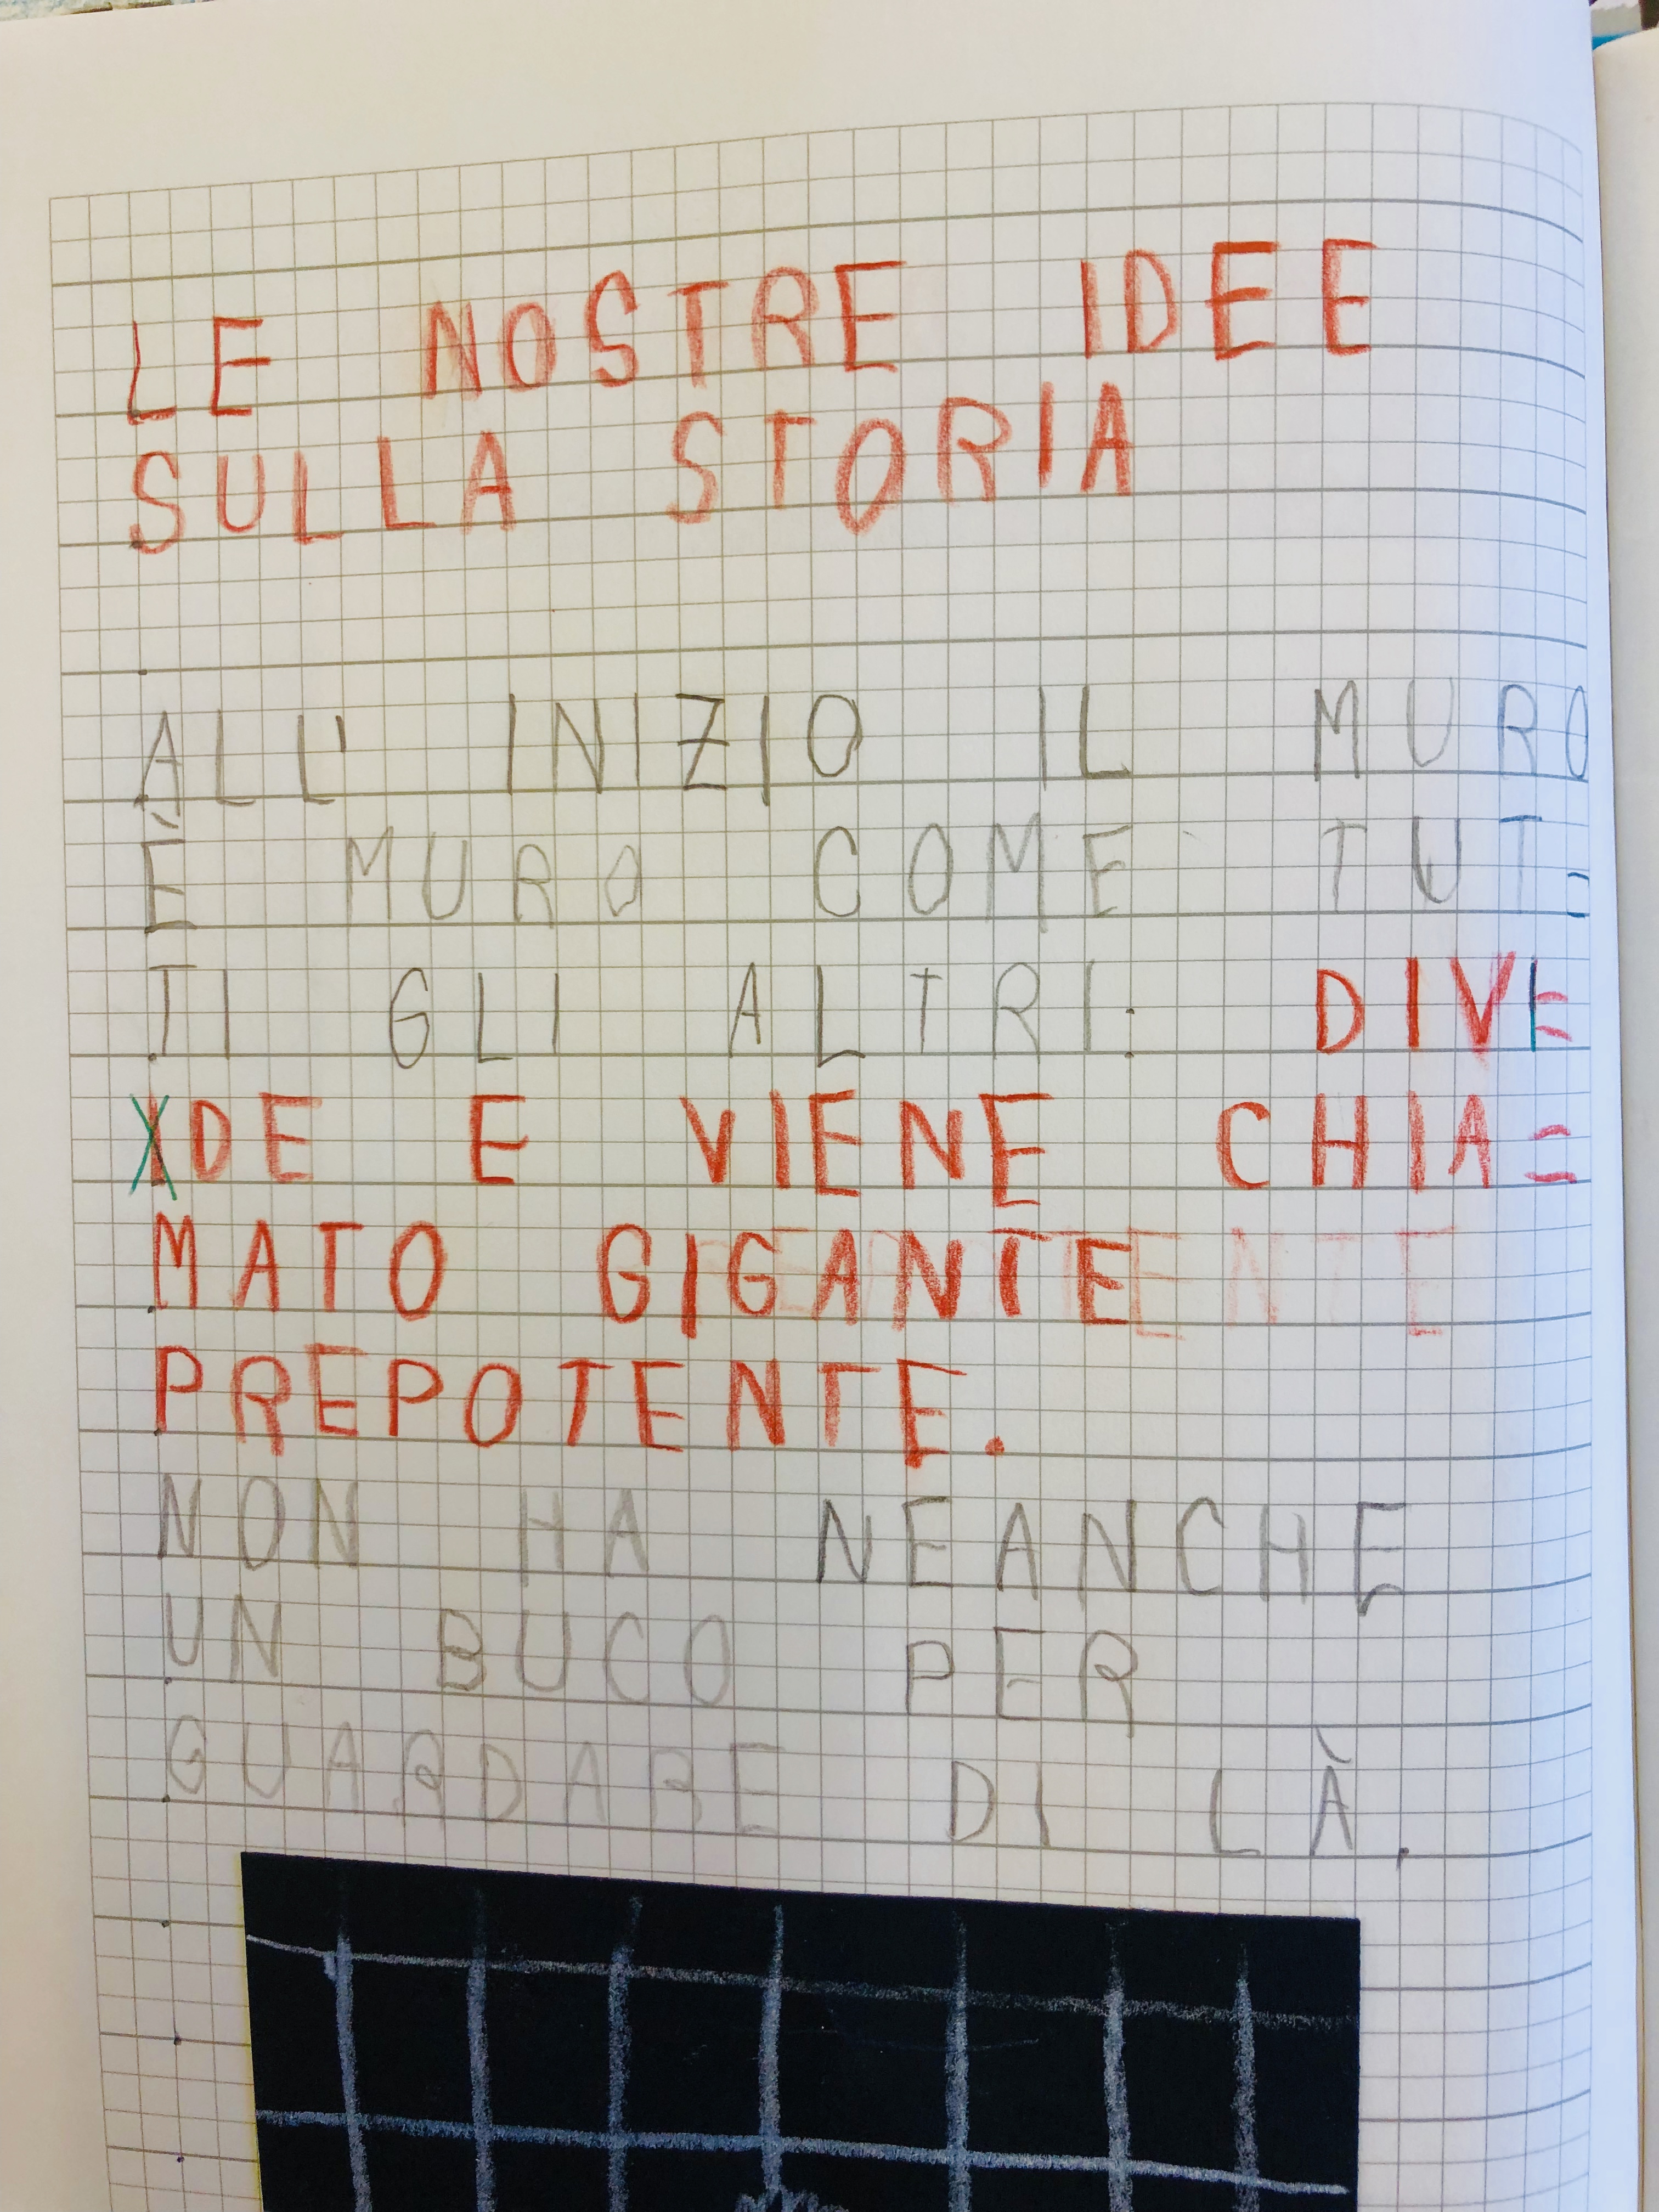 LE NOSTRE IDEE
SULLA STORIA
ALL' INIZIO IL MURO
È MURO COME TUT=
TI GLI ALTRI: DIVI
DE E VIENE CHIA=
MATO GIGANTE
PREPOTENTE.
NON HA NEANCHE
UN BUCO PER
GUARDARE DI LÀ.